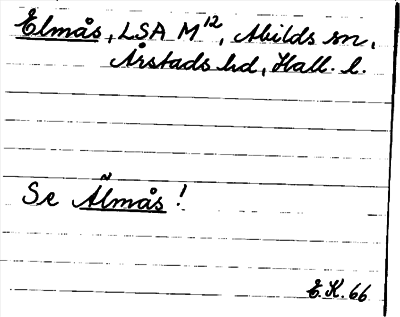 Elmås, LSA M12, Abilds sn,
Årstads hd, Hall. l.
Se Älmås!
E.K. 66